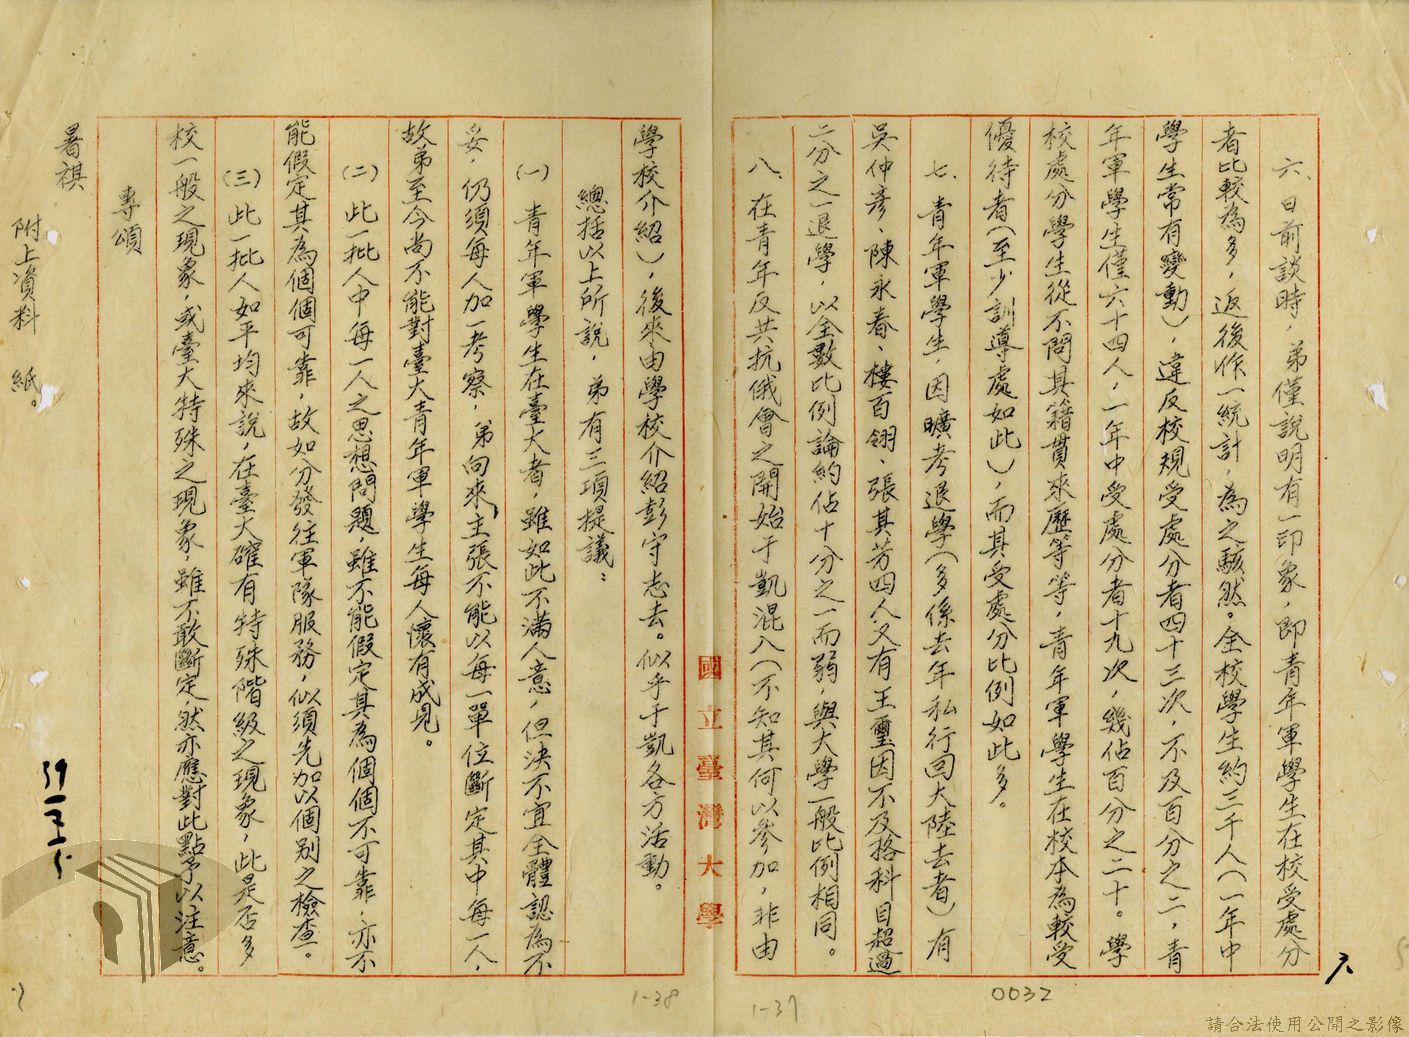 六、日前談時，弟僅說明有一印象，即青年軍學生在校受處分
者比較為多，返後作一統計，為之駭然。全校學生約三千人（一年中
學生常有變動），違反校規受處分者四十三次，不及百分之二，青
年軍學生僅六十四人，一年中受處分者十九次，幾佔百分之二十。學
校處分學生從不問其籍貫來歷等等，青年軍學生在校本為較受
優待者（至少訓導處如此），而其受處分比例如此多。
七、青年軍學生，因曠考退學（多係去年私行回大陸去者）有
吳仲彥、陳永春、樓百翎、張其芳四人，又有王璽因不及格科目超過
二分之一退學，以全數比例論約佔十分之一而弱，與大學一般比例相同。
八、在青年反共抗俄會之開始于凱混入（不知其何以參加，非由
國立臺灣大學
學校介紹），後來由學校介紹彭守志去。似乎于凱各方活動。
總括以上所說，弟有三項提議：
（一）青年軍學生在臺大者，雖如此不滿人意，但決不宜全體認為不
妥，仍須每人加一考察，弟向來主張不能以每一單位斷定其中每一人，
故弟至今尚不能對臺大青年軍學生每人懷有成見。
（二）此一批人中每一人之思想問題，雖不能假定其為個個不可靠，亦不
能假定其為個個可靠，故如分發往軍隊服務，似須先加以個別之檢查。
（三）此一批人如平均來說，在臺大確有特殊階級之現象，此是否多
校一般之現象，或臺大特殊之現象，雖不敢斷定，然亦應對此點予以注意。
專頌
暑祺
附上資料 紙。
六
0032
1-37
1-38
請合法使用公開之影像